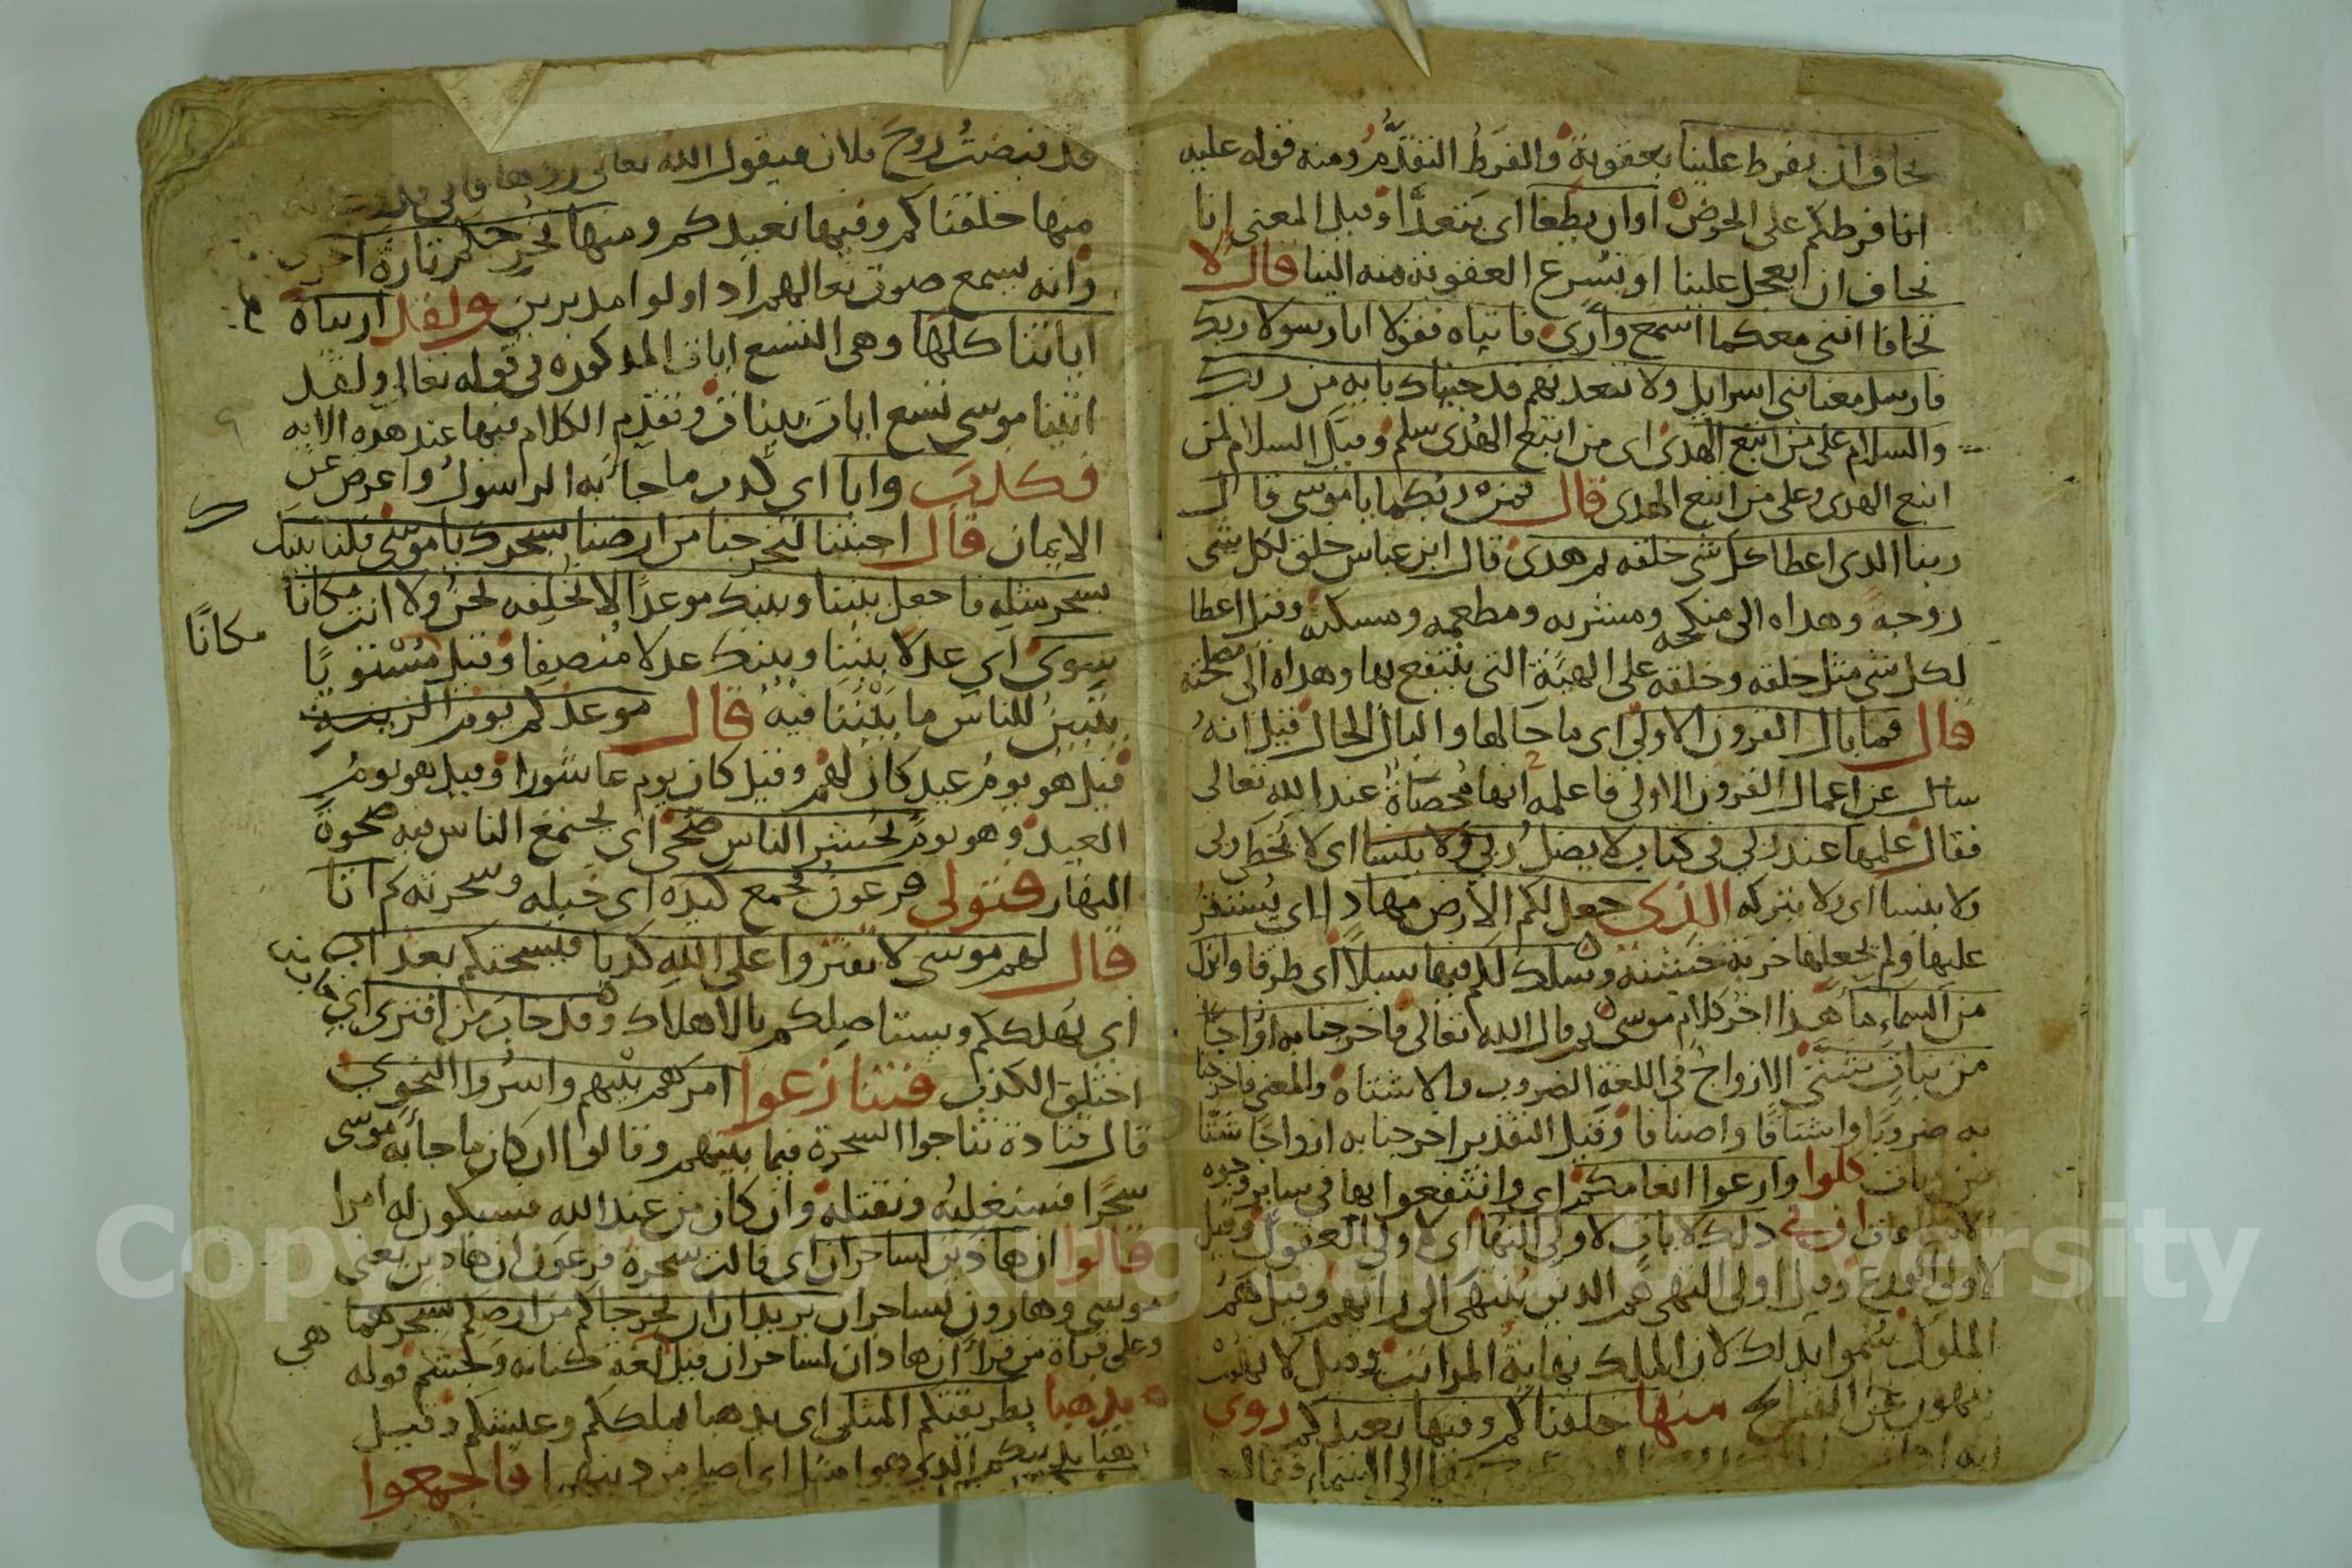 نخاف ان يفرط علينا بعقوبة والفرط التقدُّمُ ومنه قوله عليه
انا فرطكم على الحوض او ان يطغا اى يتعدّا وقيل المعنى انا
نخاف ان يعجل علينا او تسرع العقوبه منه الينا قال لا
تخافا اننى معكما اسمع وأرى فاتياه فقولا انا رسولا ربك
فارسل معنا بنى اسرايل ولا تعذبهم قد جيناك بايه من ربك
والسلام على من اتبع الهدى اى من اتبع الهُدى سلم وقيل السلام لمن
اتبع الهدى وعلى من اتبع الهدى قال فمن ربكما يا موسى قال
ربنا الدى اعطا كل شى خلقه ثم هدى قال ابن عباس خلق لكل شى
زوجه وهداه الى منكحه ومشربه ومطعمه ومسكنه وقيل اعطا
لكل شى مثل خلقه وخلقه على الهيئة التى ينتفع بها وهداه الى مصلحته
قال فما بال القرون الاولى اى ما حالها والبال الحال قيل انهُ
سال عن اعمال القرون الاولى فاعلمه انها مُحصاةٌ عند الله تعالى
فقال علمها عند ربي فى كتاب لا يضل ربي ولا ينسا اى لا يُخطى ربى
ولا ينسا اى ولا يتركه الذى جعل لكم الارض مهادا اى يُستقرُ
عليها ولم يجعلها خربة خشنه وسلك لكم فيها سبلاً اى طرقا وانزل
من السماء ماء هذا اخر كلام موسى ثم قال الله تعالى فاخرجنا به ازواجًا
من نبات شتى الازواجُ فى اللغة الضروب والاشتاه والمعنى فاخرجنا
به ضروبًا واشتاقا واصنافا وقيل التقدير اخرجنا به ازواجًا شتا
من نبات كلوا وارعوا انعامكم اى وانتفعوا بها فى ساير وجوه
ان في ذلك لايات لاولى النها اى لاولى العقول وقيل
لاولى الورع وقيل اولى النهى هم الدين يُنتهى الى رايهم وقيل هم
الملوك سُموا بذلك لان الملك نهاية المراتب وقيل لانهم
ينهون عن القبايح منها خلقناكم وفيها نعيدكم روى
الى السماء فقال
قد قبضتُ روحَ فلان فيقول الله تعالى
منها خلقناكم وفيها نعيدكم ومنها نُخرجكم تارةً اخرى
وانه يسمع صوت نعالهم اذ اولوا مدبرين ولقد ارىناه
اياتنا كلها وهى التسع ايات المذكوره فى قوله تعالى ولقد
اتينا موسى تسع اياتٍ بيناتٍ وتقدّم الكلام فيها عند هذه الايه
فكذبَ وابا اى كذب ما جا به الرسول واعرض عن
الايمان قال اجئتنا لتخرجنا من ارضنا بسحرك يا موسى فلناتينك
بسحر مثله فاجعل بيننا وبينك موعدًا لا نُخلفه نحنُ ولا انت مكانا
مكانًا
سوى اى عدلا بيننا وبينك عدلا مُنصفِا وقيل مُسْتويًا
يتبينُ للناس ما بيْننا فيه قال موعدكم يوم الزينةِ
قيل هو يومُ عيد كان لهم وقيل كان يوم عاشورا وقيل هو يومُ
العيد وهو يوم يُحشر الناس ضحًى اى يجتمع الناس فيه ضحوةً
النهار فتولى فرعون فجمع كيده اى حيله وسحرته ثم اتا
قال لهم موسى لا تفتروا على اللهِ كذبا فيُسحتكم بعذاب
اى يهلككم ويستاصِلكم بالاهلاك وقد خاب من افترى اى
اختلق الكذب فتنازعوا امرهم بيْنهم واسرُوا النجوى
قال قتادة تناجوا السحرة فيما بينهم وقالوا ان كان ما جا به موسى
سحرًا فسنغلبُه ونقتله وان كان من عند الله فسيكون له امرا
قالوا ان هاذين لساحران اى قالت سحرةُ فرعون ان هاذين يعنى
موسى وهارون لساحران يريدان ان يُخرجاكم من ارضكم بسحرهما
وعلى قراة من قراَ ان هاذان لساحران قيل لغة كنانه وخثعم قوله
هي
يذهبا بطريقتكم المثلى اى يذهبا بملككم وعيشكم وقيل
هنا بدينكم الذى هوا مثل اى اصلح من دينهم فاجمعوا